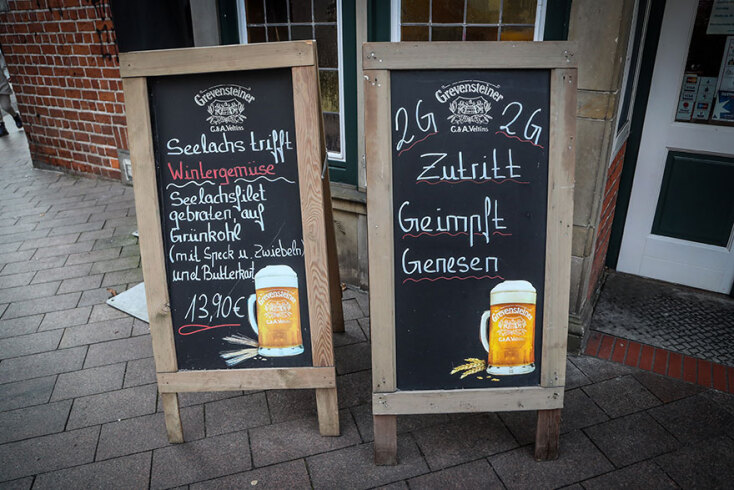 Grevensteiner
G.&A. Veltins
Seelachs trifft
Wintergemüse
Seelachsfilet
gebraten, auf
Grünkohl
(mit Speck u. Zwiebeln)
und Butterkart.
13,90€
Grevensteiner
G.&A. Veltins
Grevensteiner
G.&A. Veltins
2G 2G
Zutritt
Geimpft
Genesen
Grevensteiner
G.&A. Veltins